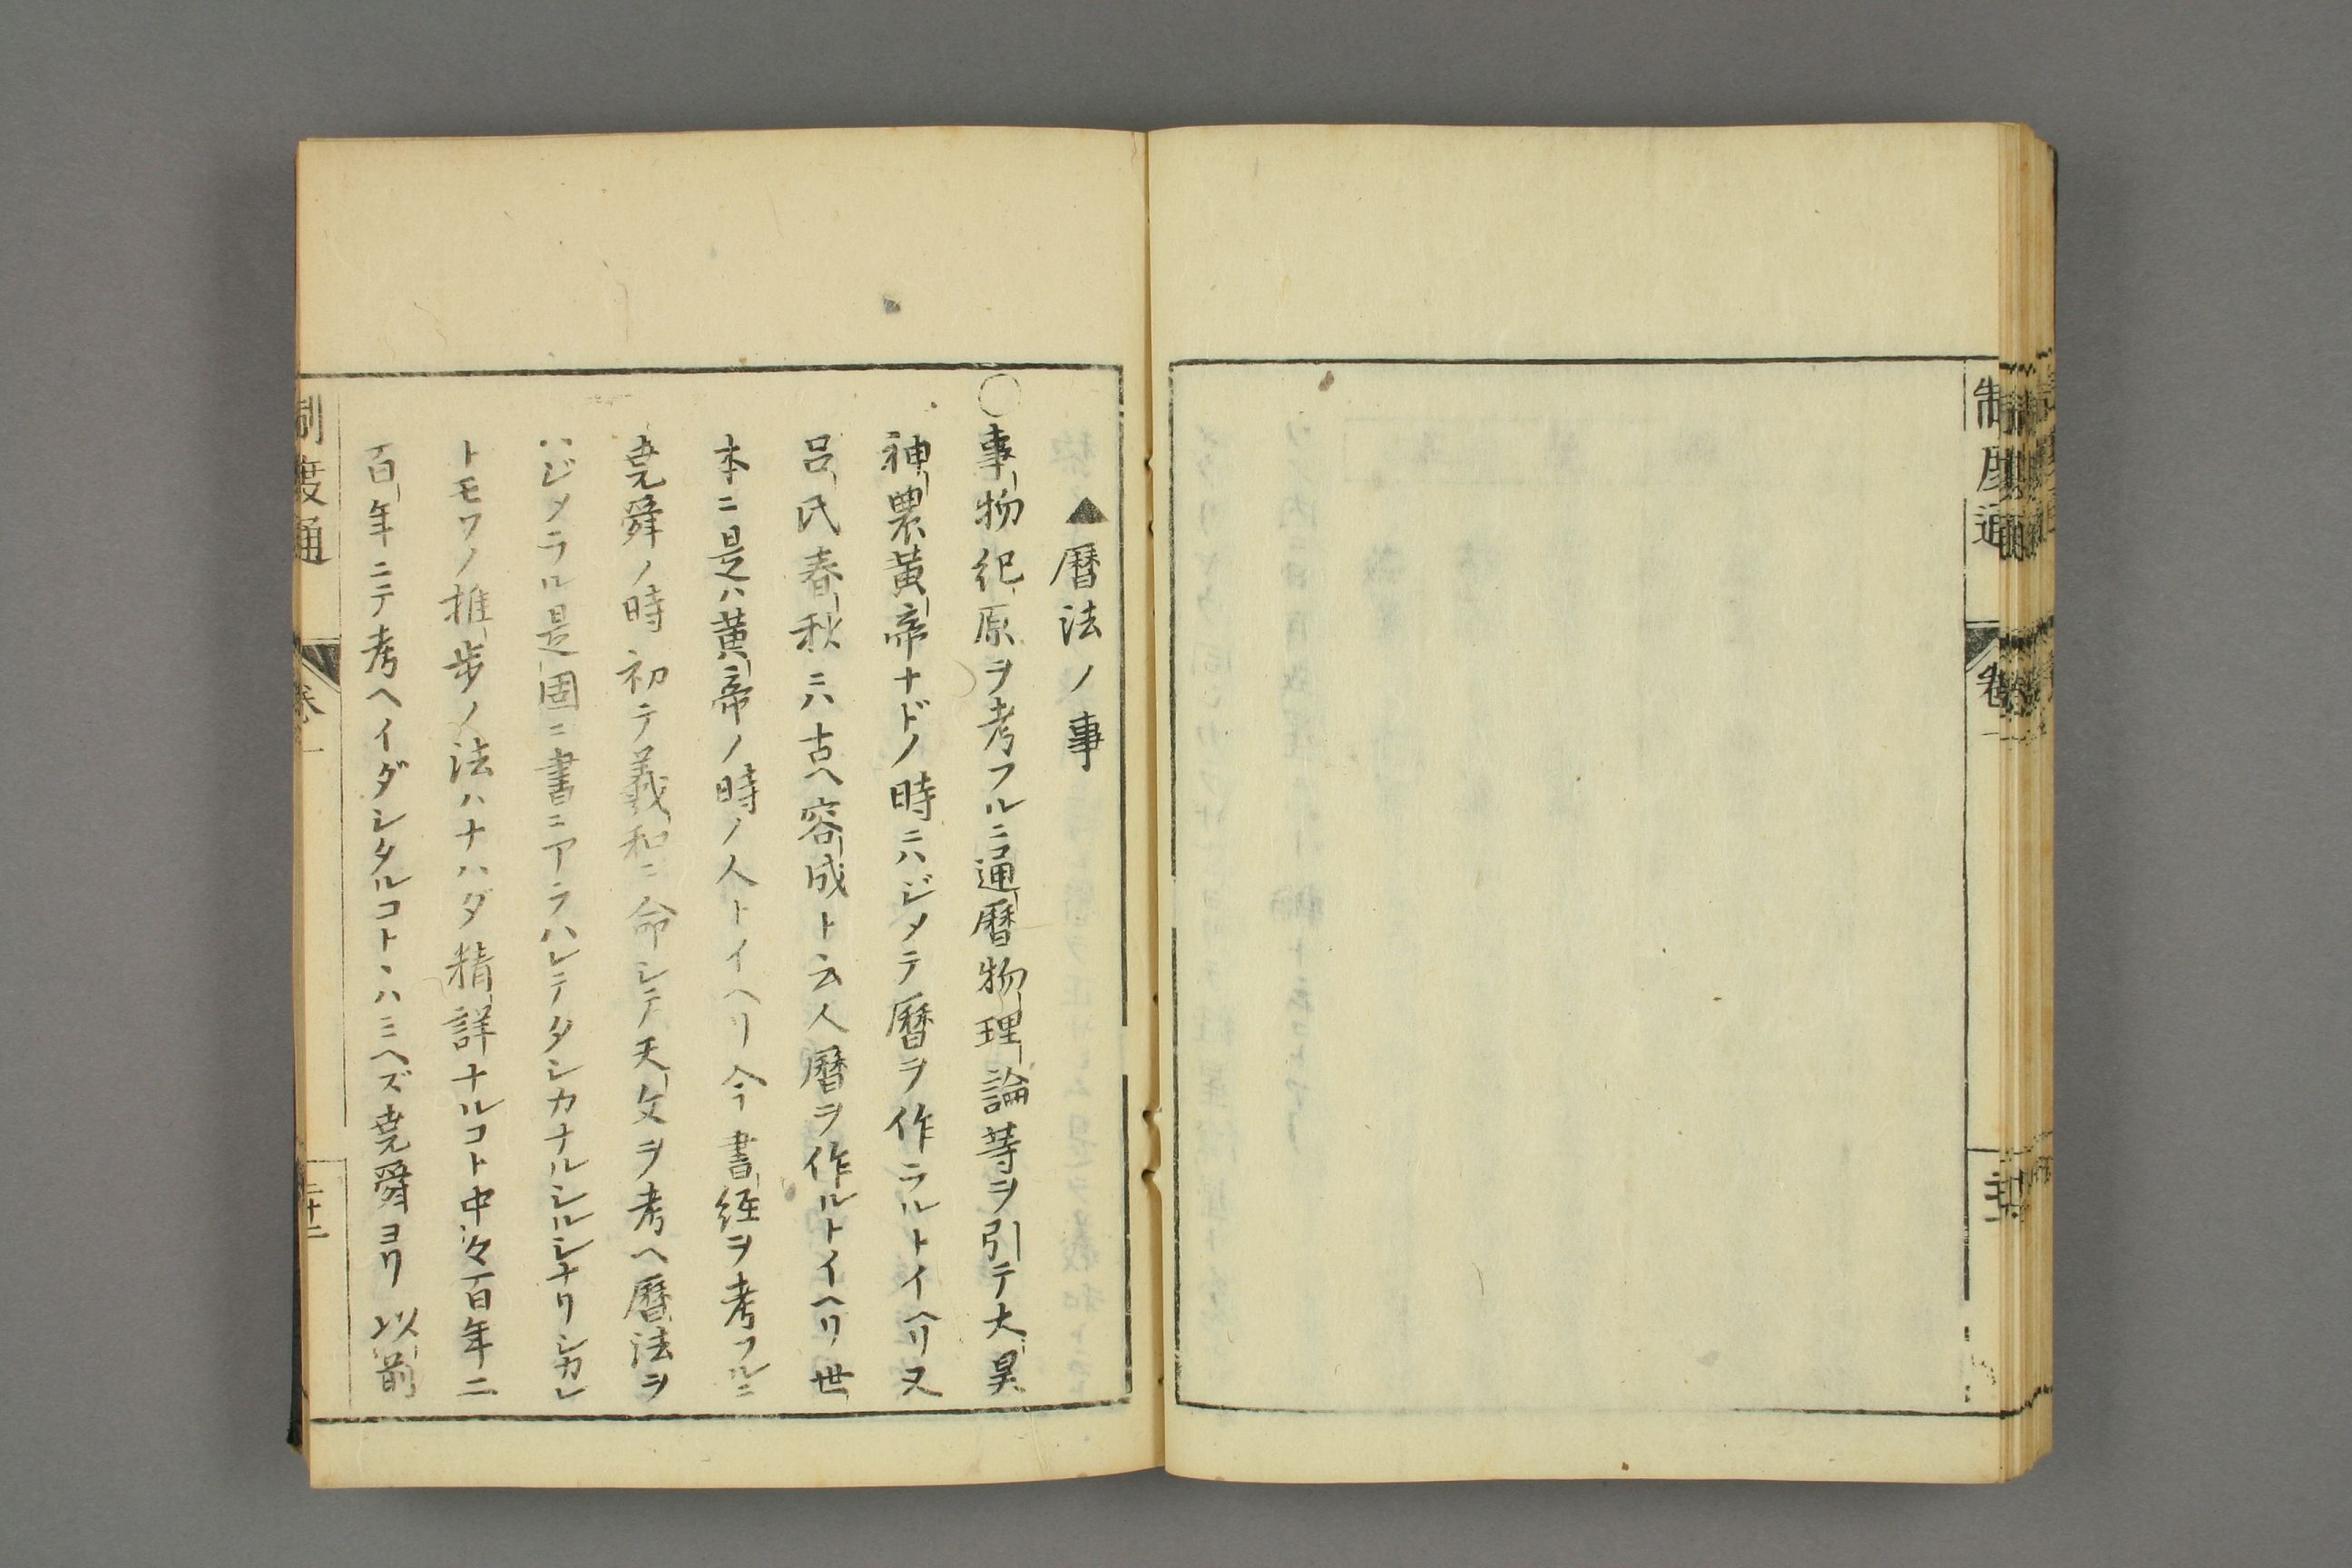 制度通
卷
▲曆法ノ事
○事物紀原ヲ考フルニ通曆物理論等ヲ引テ大昊
神農黃帝ナドノ時ニハジメテ曆ヲ作ラルトイヘリ又
呂氏春秋ニハ古ヘ容成ト云人曆ヲ作ルトイヘリ世
本ニ是ハ黃帝ノ時ノ人トイヘリ今書経ヲ考フルニ
堯舜ノ時初テ羲和ニ命シテ天文ヲ考ヘ曆法ヲ
ハジメラル是固ニ書ニアラハレテタシカナルシルシナリシカレ
トモソノ推歩ノ法ハナハダ精詳ナルコト中々百年二
百年ニテ考ヘイダシタルコトハミヘズ堯舜ヨリ以前
制度通
卷一
二十二